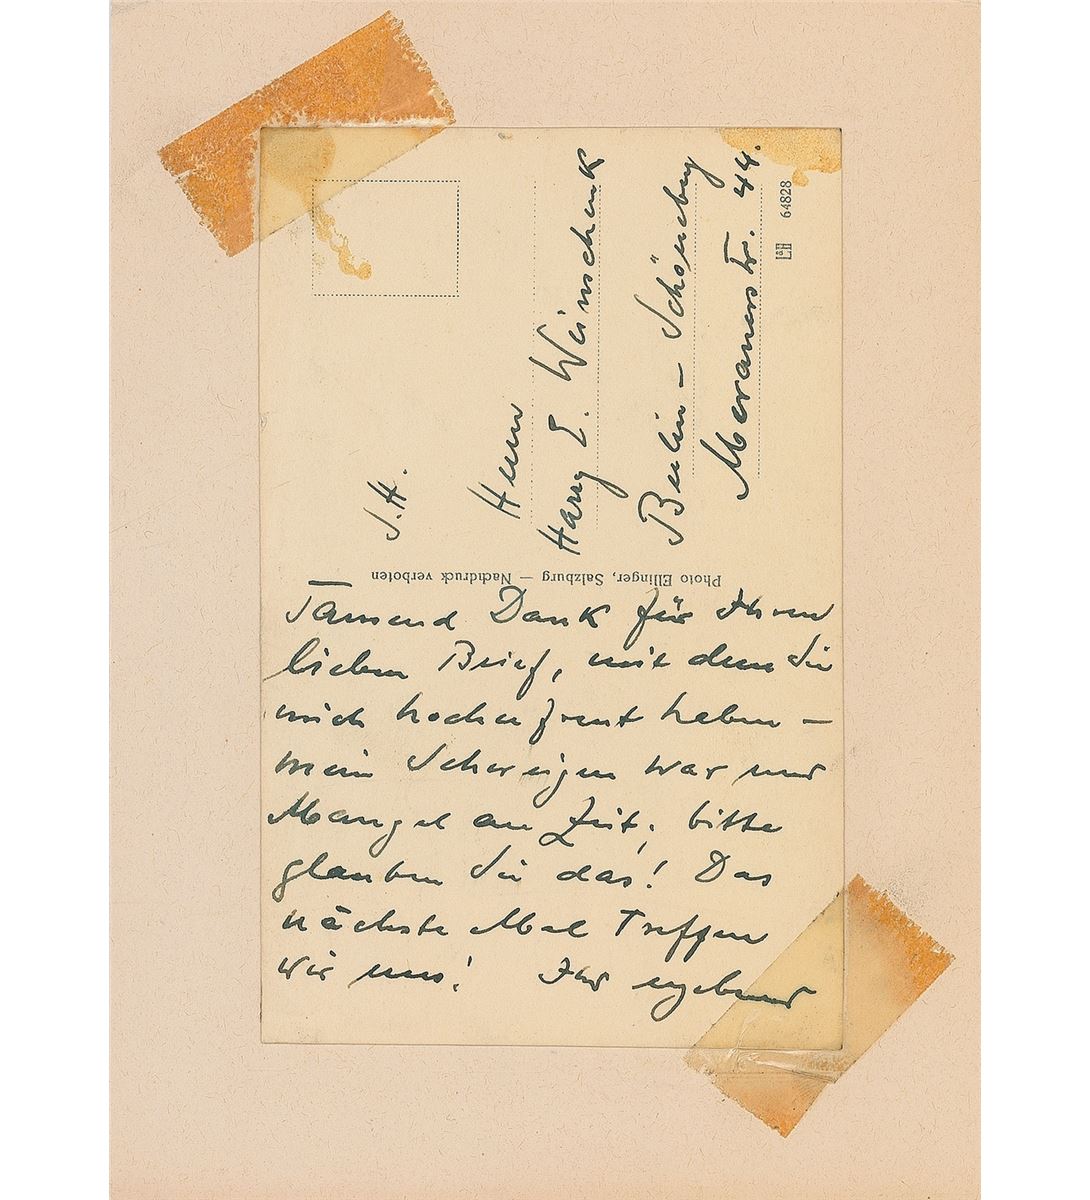 J.H.
Herrn
Harry E. Weinschenk
Berlin – Schöneberg
Meranerstr. 44.
LH 64828
Photo Ellinger, Salzburg — Nachdruck verboten
Tausend Dank für Ihren
lieben Brief, mit dem Sie
mich hocherfreut haben –
mein Schweigen war nur
Mangel an Zeit, bitte
glauben Sie das! Das
nächste Mal treffen
wir uns! Ihr ergebener